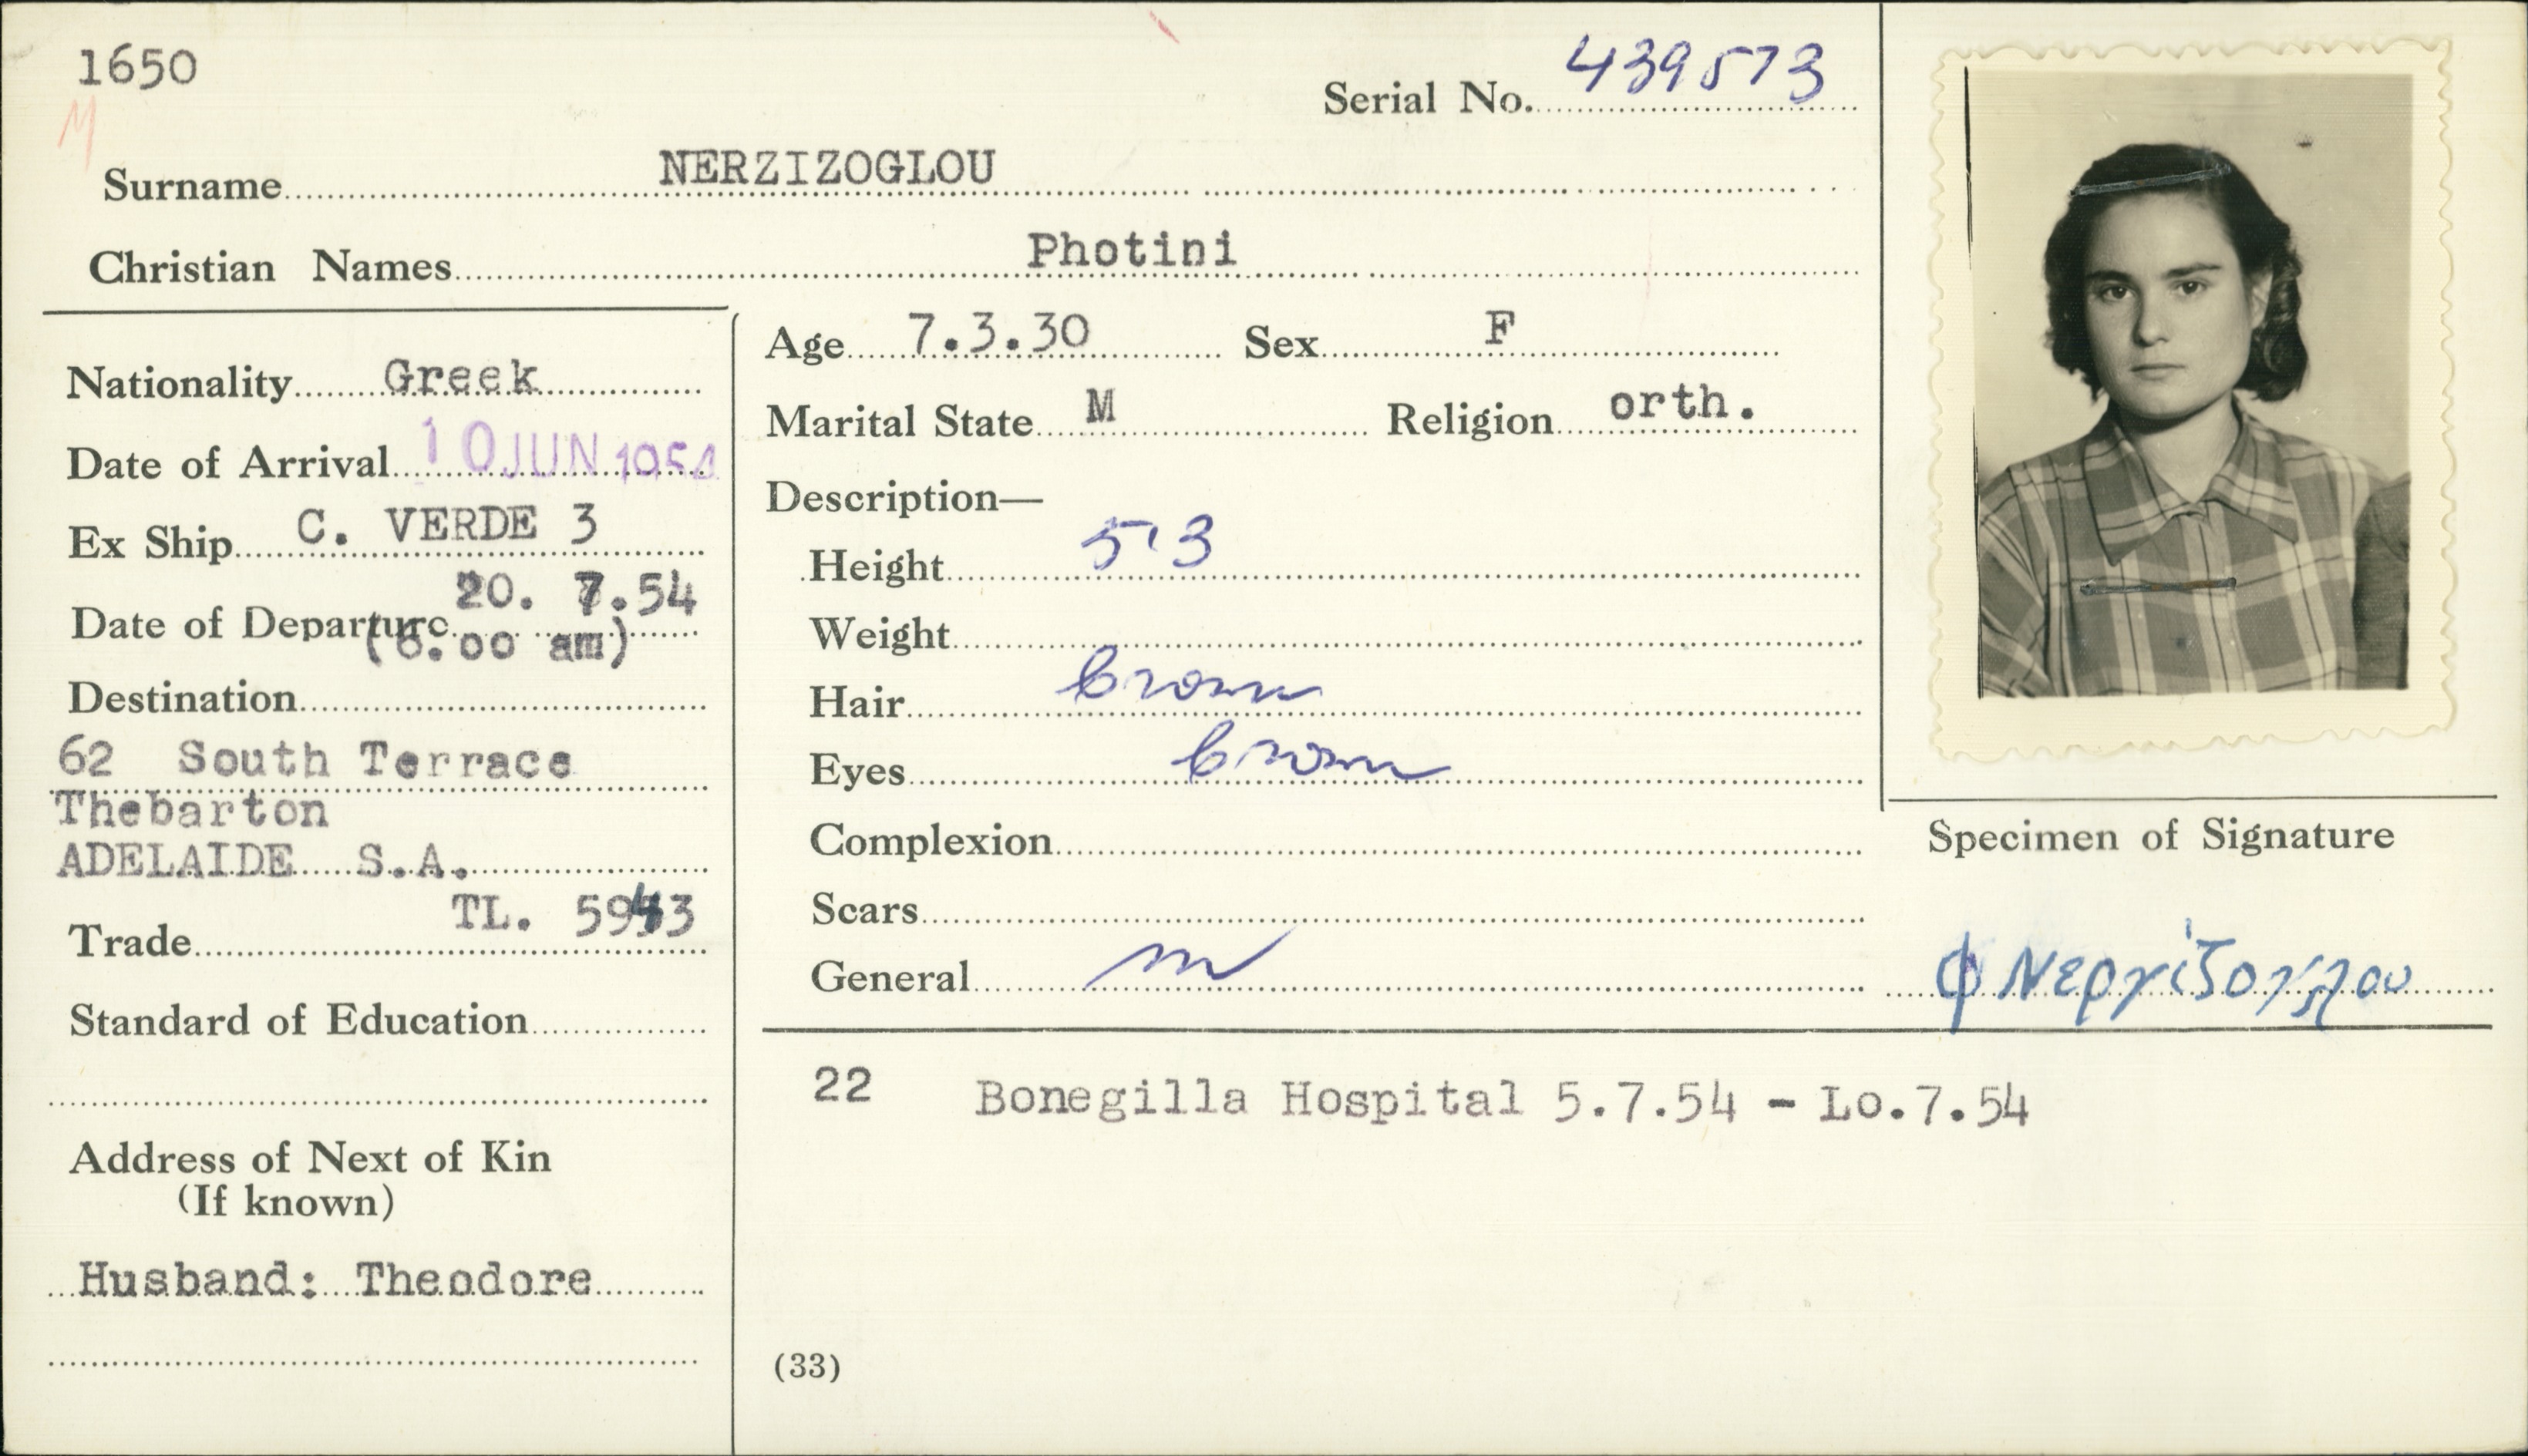 1650
M
Serial No. 439573
Surname NERZIZOGLOU
Christian Names Photini
Nationality Greek
Date of Arrival 10 JUN 1954
Ex Ship C. VERDE 3
Date of Departure 20. 7.54
(6.00 am)
Destination
62 South Terrace
Thebarton
ADELAIDE S.A.
TL. 5943
Trade
Standard of Education
Address of Next of Kin
(If known)
Husband: Theodore
Age 7.3.30 Sex F
Marital State M Religion orth.
Description—
Height 5'3
Weight
Hair brown
Eyes brown
Complexion
Scars
General
22 Bonegilla Hospital 5.7.54 - Lo.7.54
(33)
Specimen of Signature
Φ Νεργίζογλου